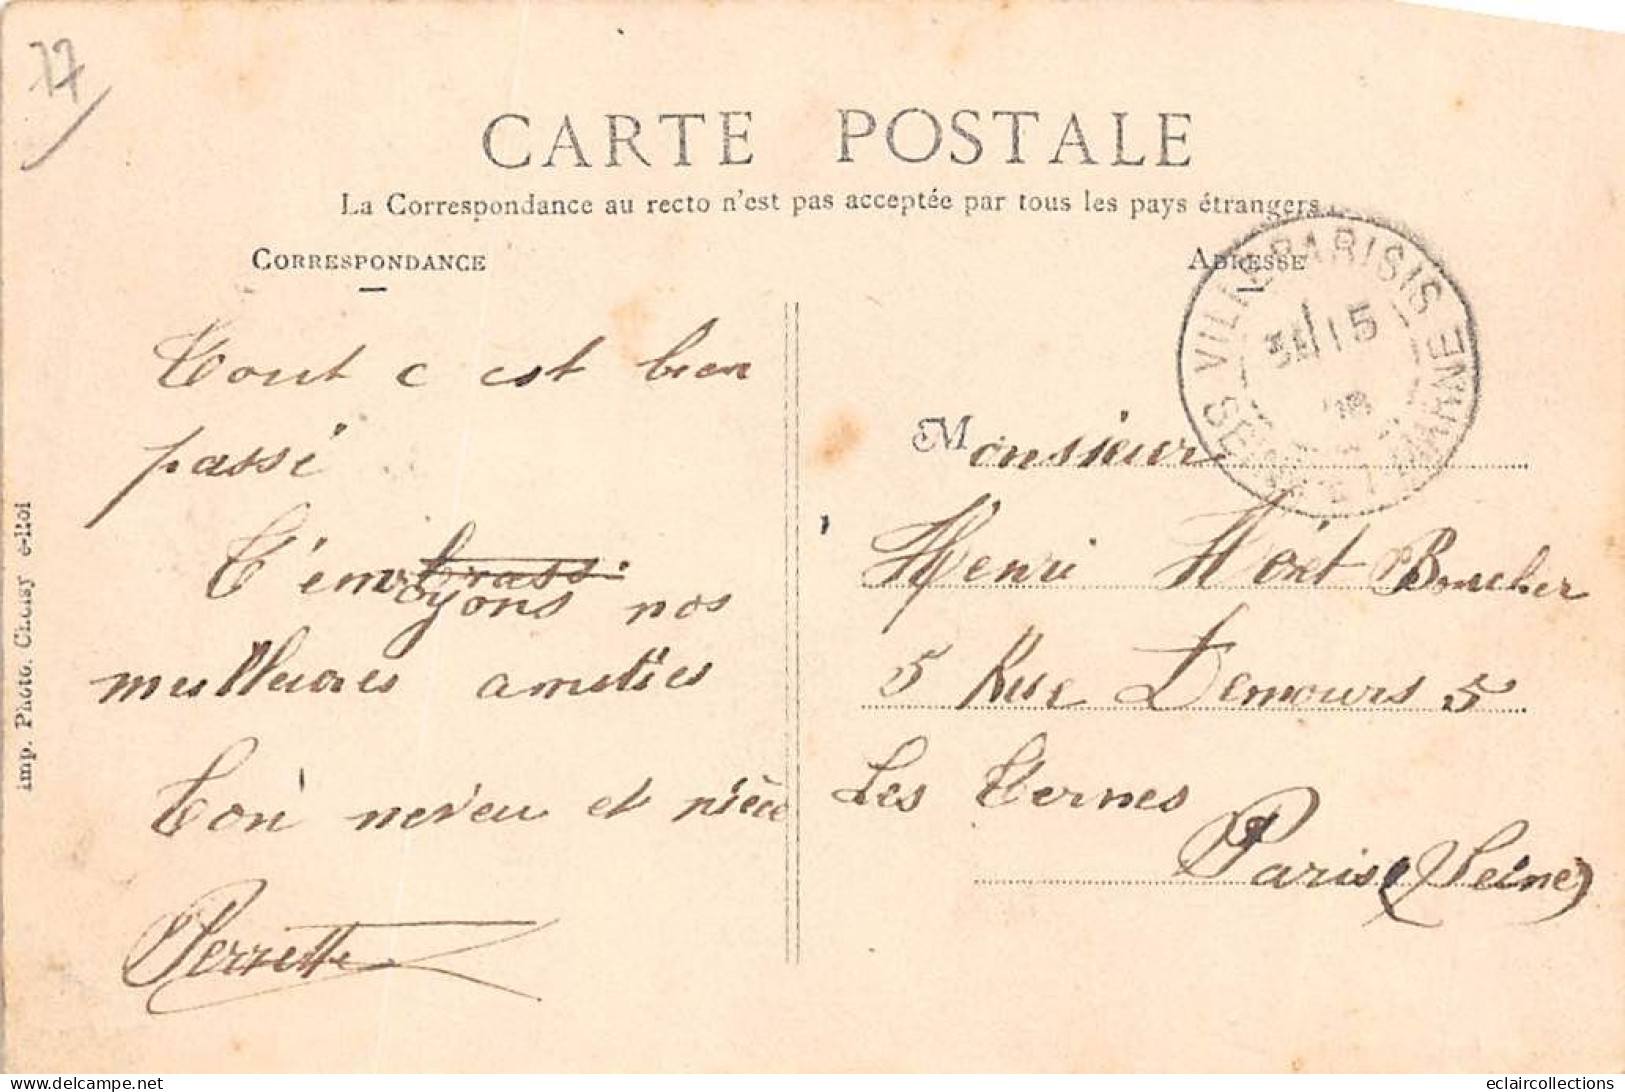 77
CARTE POSTALE
La Correspondance au recto n'est pas acceptée par tous les pays étrangers.
CORRESPONDANCE
ADRESSE
VILLEPARISIS
SEINE ET MARNE
15
Tout c est bien
passé
T'envoyons nos
meilleures amitiés
Ton neveu et nièce
Perrette
Monsieur
Henri Hoét Boucher
5 Rue Demours 5
Les Ternes
Paris (Seine)
Imp. Photo. Choisy-le-Roi
www.delcampe.net
eclaircollections